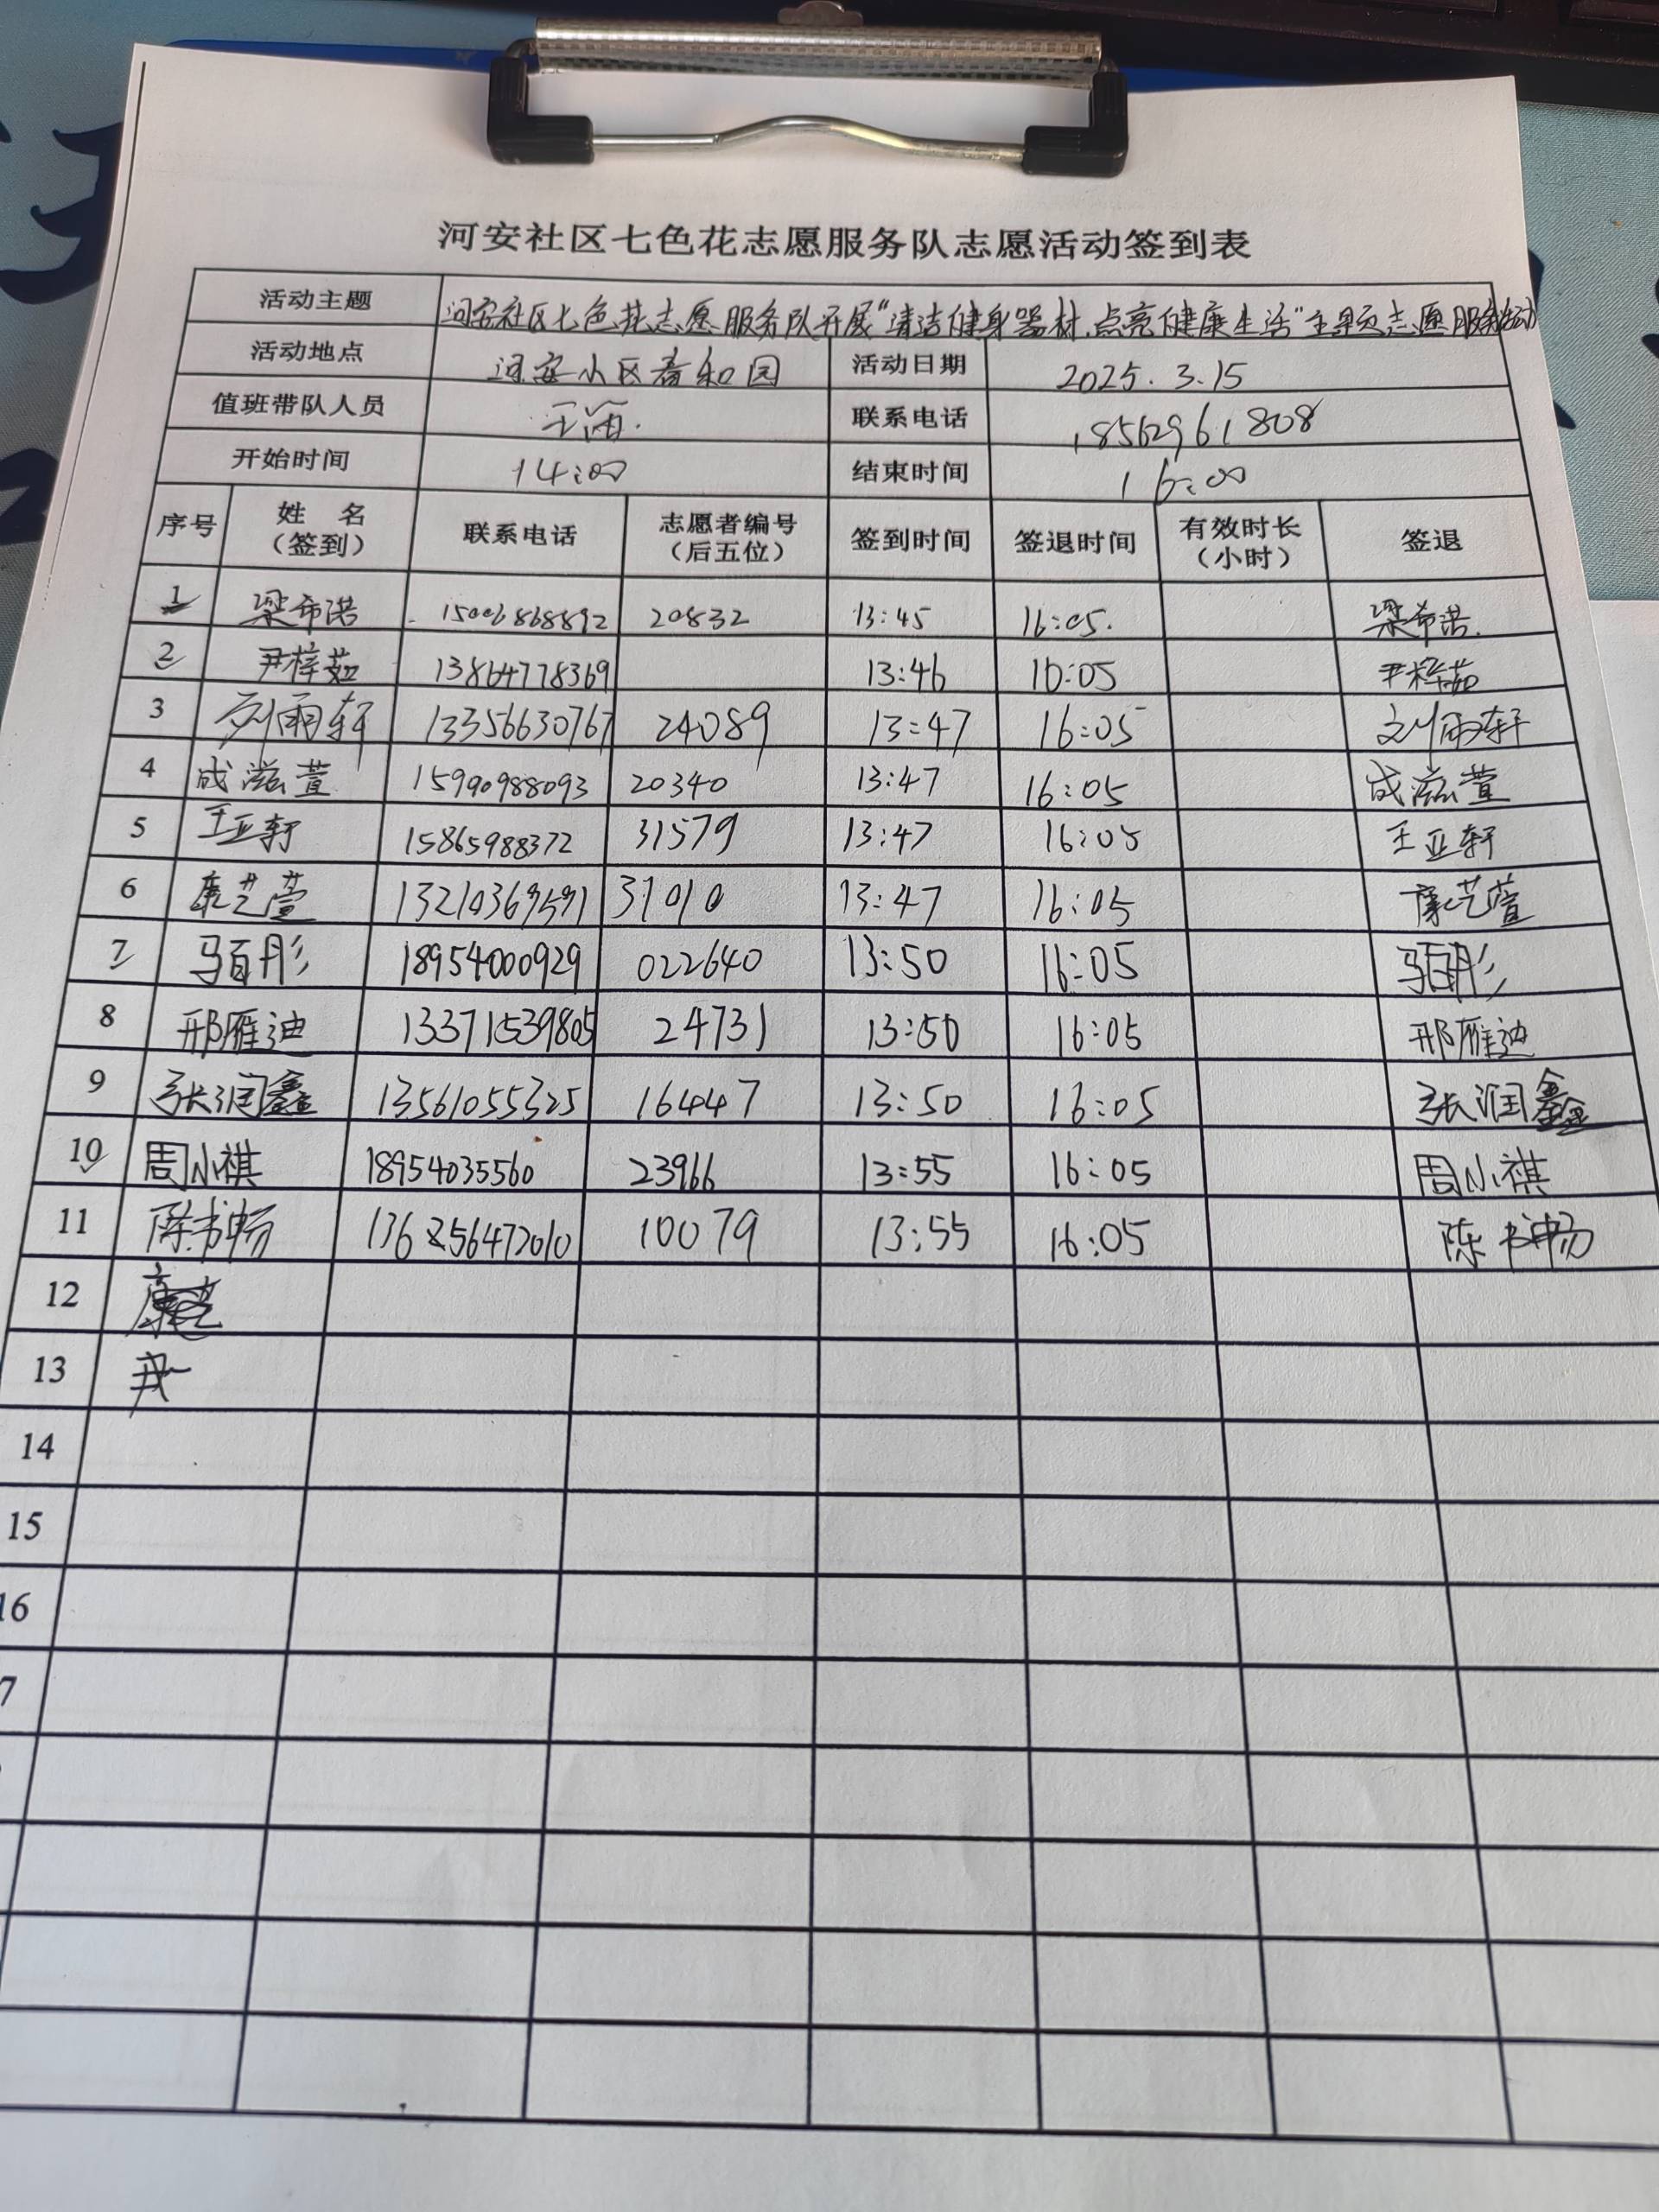 河安社区七色花志愿服务队志愿活动签到表
活动主题 河安社区七色花志愿服务队开展“清洁健身器材,点亮健康生活”主题志愿服务活动
活动地点 河安小区春和园 活动日期 2025.3.15
值班带队人员 王 联系电话 18562961808
开始时间 14:00 结束时间 16:00
序号 姓 名（签到） 联系电话 志愿者编号（后五位） 签到时间 签退时间 有效时长（小时） 签退
1 梁希诺 15006868892 20832 13:45 16:05. 梁希诺.
2 尹梓茹 13864778369 13:46 16:05 尹梓茹
3 刘雨轩 13356630767 24089 13:47 16:05 刘雨轩
4 成滋萱 15990988093 20340 13:47 16:05 成滋萱
5 王亚轩 15865988372 31579 13:47 16:05 王亚轩
6 康艺萱 31010 13:47 16:05 康艺萱
7 马百彤 18954000929 022640 13:50 16:05 马百彤
8 邢雁迪 13371539805 24731 13:50 16:05 邢雁迪
9 张润鑫 13561055325 16447 13:50 16:05 张润鑫
10 周小祺 18954035560 23966 13:55 16:05 周小祺
11 陈书畅 10079 13:55 16:05 陈书畅
12
13
14
15
16
7